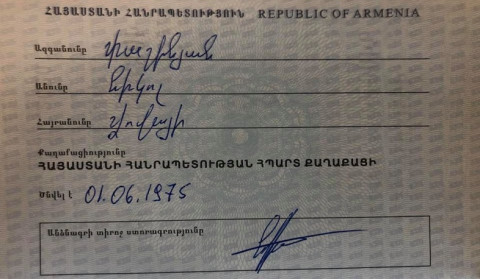 ՀԱՅԱՍՏԱՆԻ ՀԱՆՐԱՊԵՏՈՒԹՅՈՒՆ REPUBLIC OF ARMENIA
Ազգանունը Փաշինյան
Անունը Նիկոլ
Հայրանունը Վովայի
Քաղաքացիությունը
ՀԱՅԱՍՏԱՆԻ ՀԱՆՐԱՊԵՏՈՒԹՅԱՆ ՀՊԱՐՏ ՔԱՂԱՔԱՑԻ
Ծնվել է 01.06.1975
Անձնագրի տիրոջ ստորագրությունը